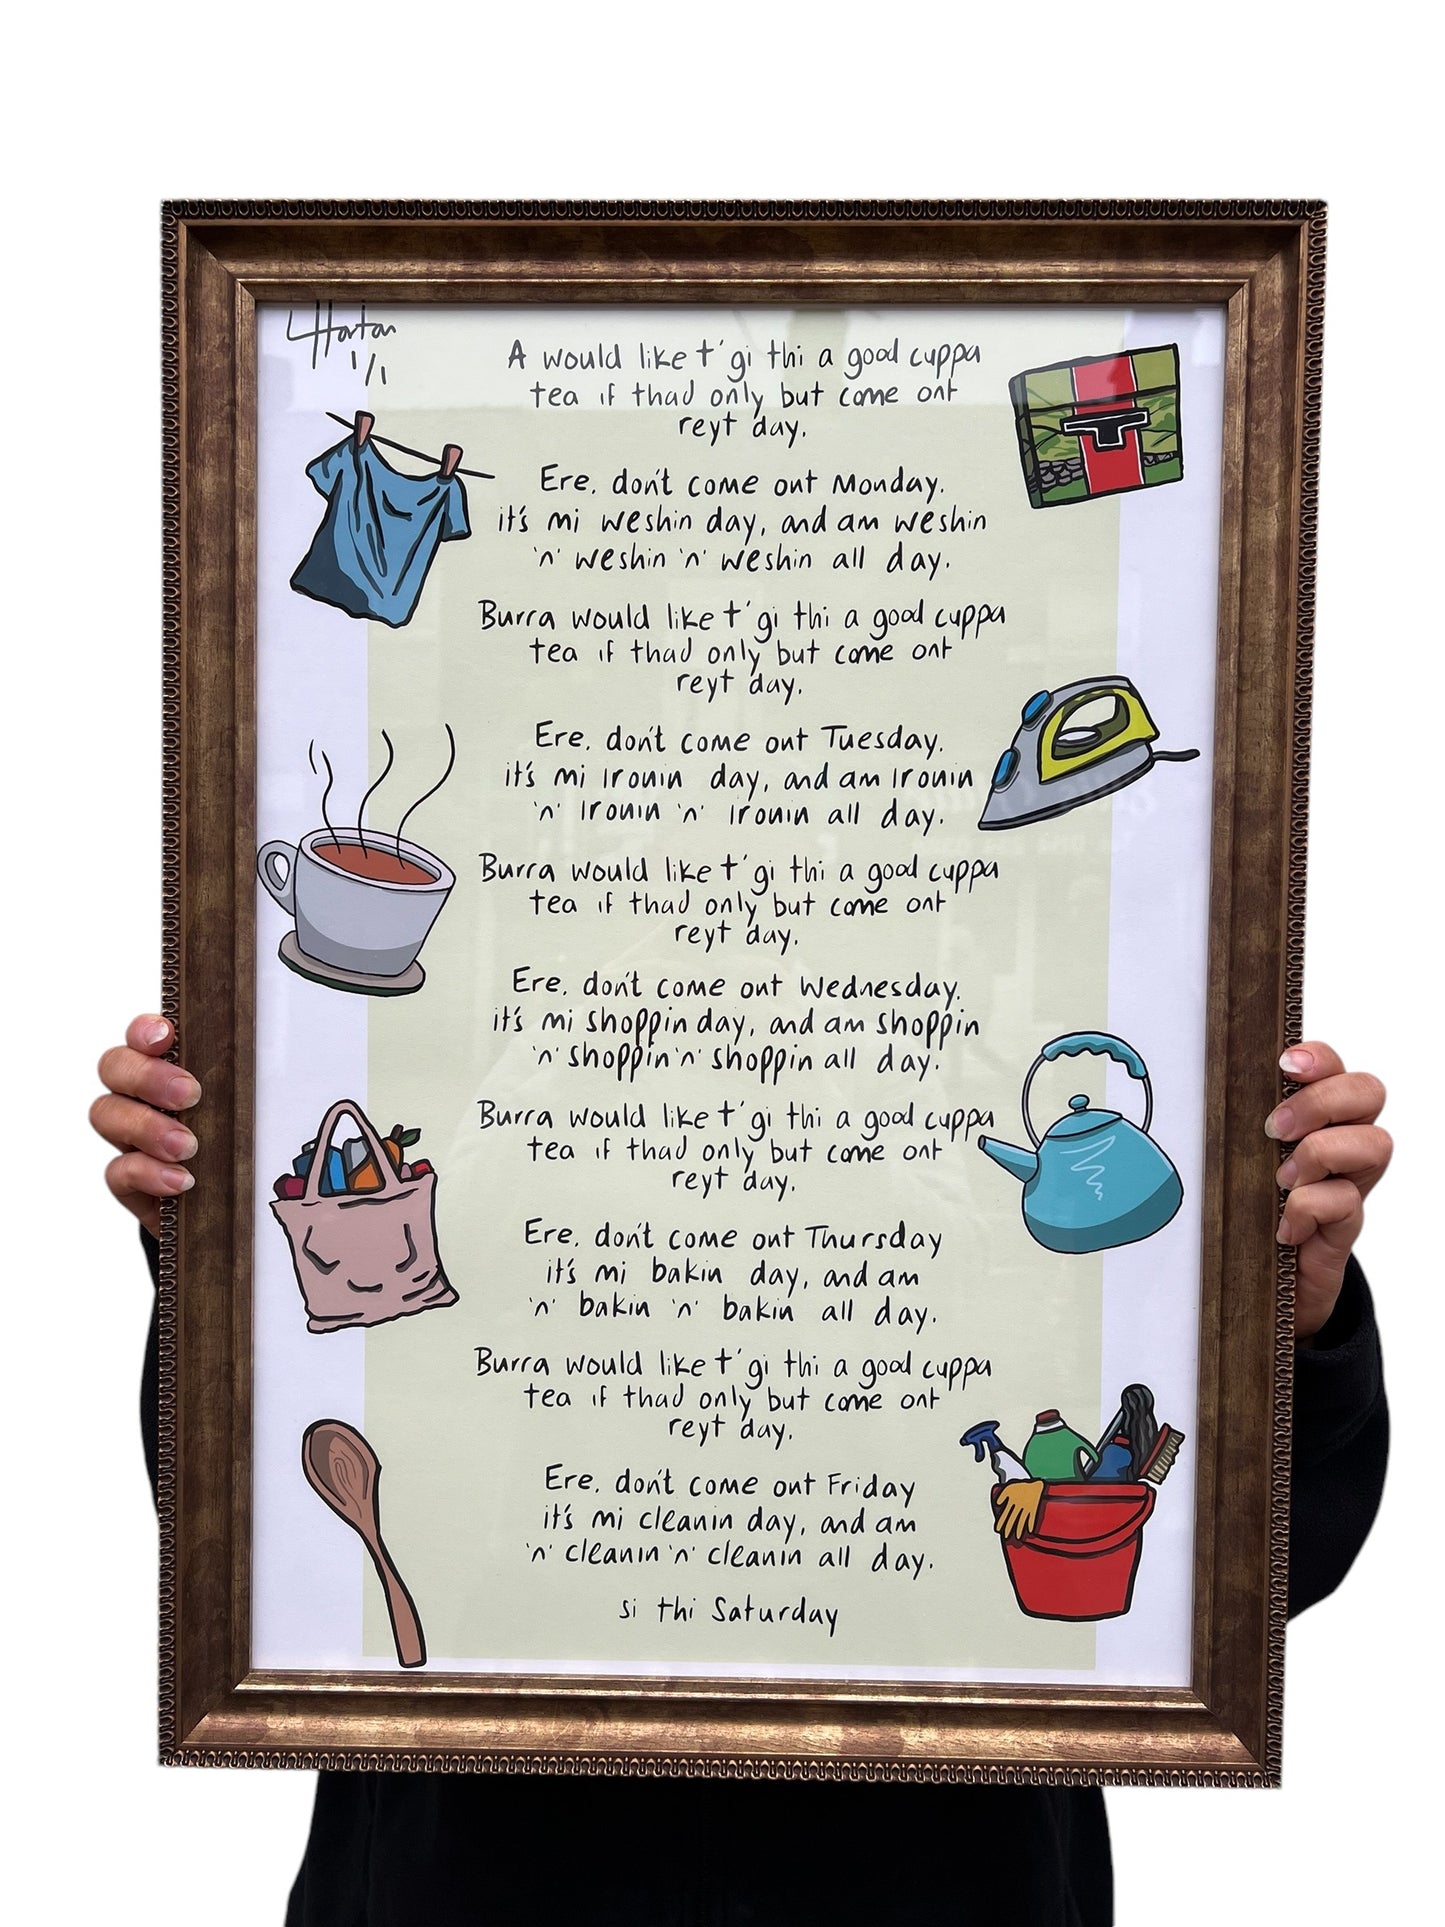 LHorton
1/1
A would like t'gi thi a good cuppa
tea if thad only but come ont
reyt day.
Ere, don't come ont Monday.
it's mi weshin day, and am weshin
'n' weshin 'n' weshin all day.
Burra would like t'gi thi a good cuppa
tea if thad only but come ont
reyt day.
Ere, don't come ont Tuesday.
it's mi Ironin day, and am Ironin
'n' Ironin 'n' Ironin all day.
Burra would like t'gi thi a good cuppa
tea if thad only but come ont
reyt day.
Ere, don't come ont Wednesday.
it's mi shoppin day, and am shoppin
'n' shoppin 'n' shoppin all day.
Burra would like t'gi thi a good cuppa
tea if thad only but come ont
reyt day.
Ere, don't come ont Thursday
it's mi bakin day, and am
'n' bakin 'n' bakin all day.
Burra would like t'gi thi a good cuppa
tea if thad only but come ont
reyt day.
Ere, don't come ont Friday
it's mi cleanin day, and am
'n' cleanin 'n' cleanin all day.
si thi Saturday